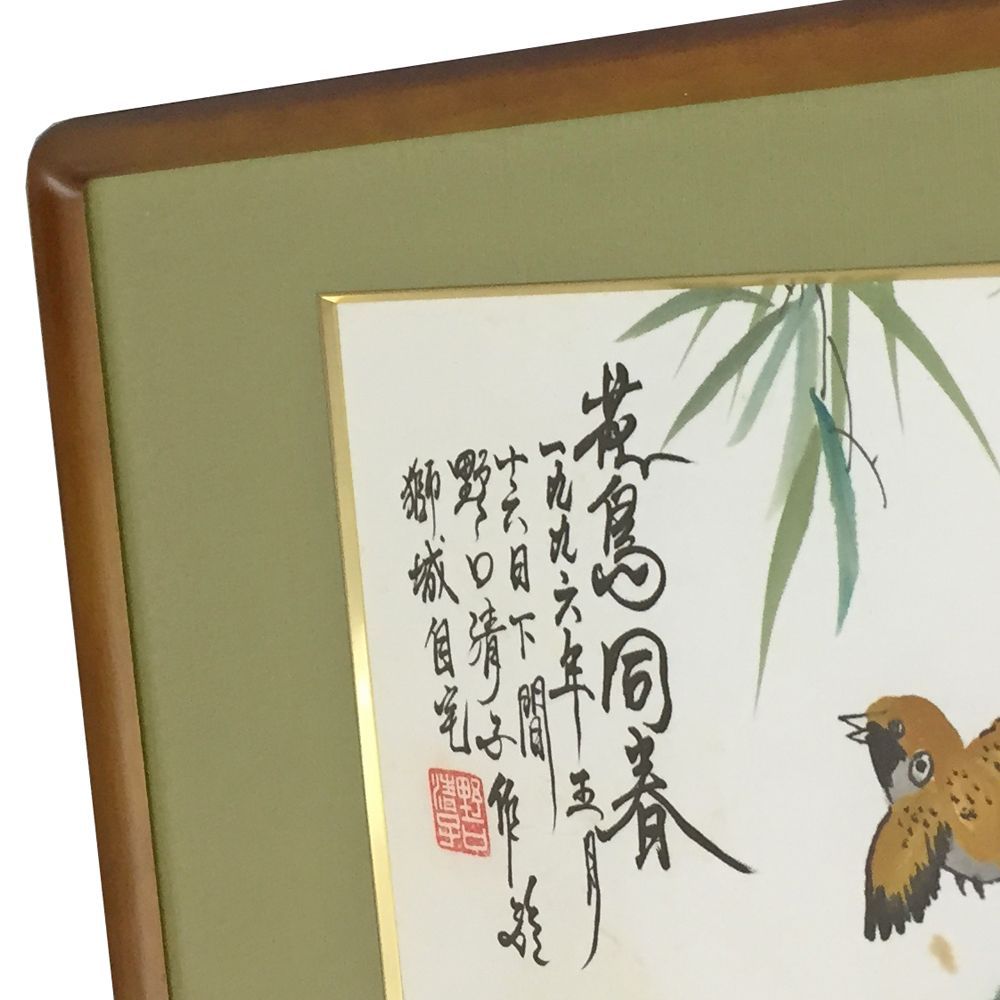 花鳥同春
一九九六年五月
十六日下閒
野口清子作於
獅城自宅
野口
清子